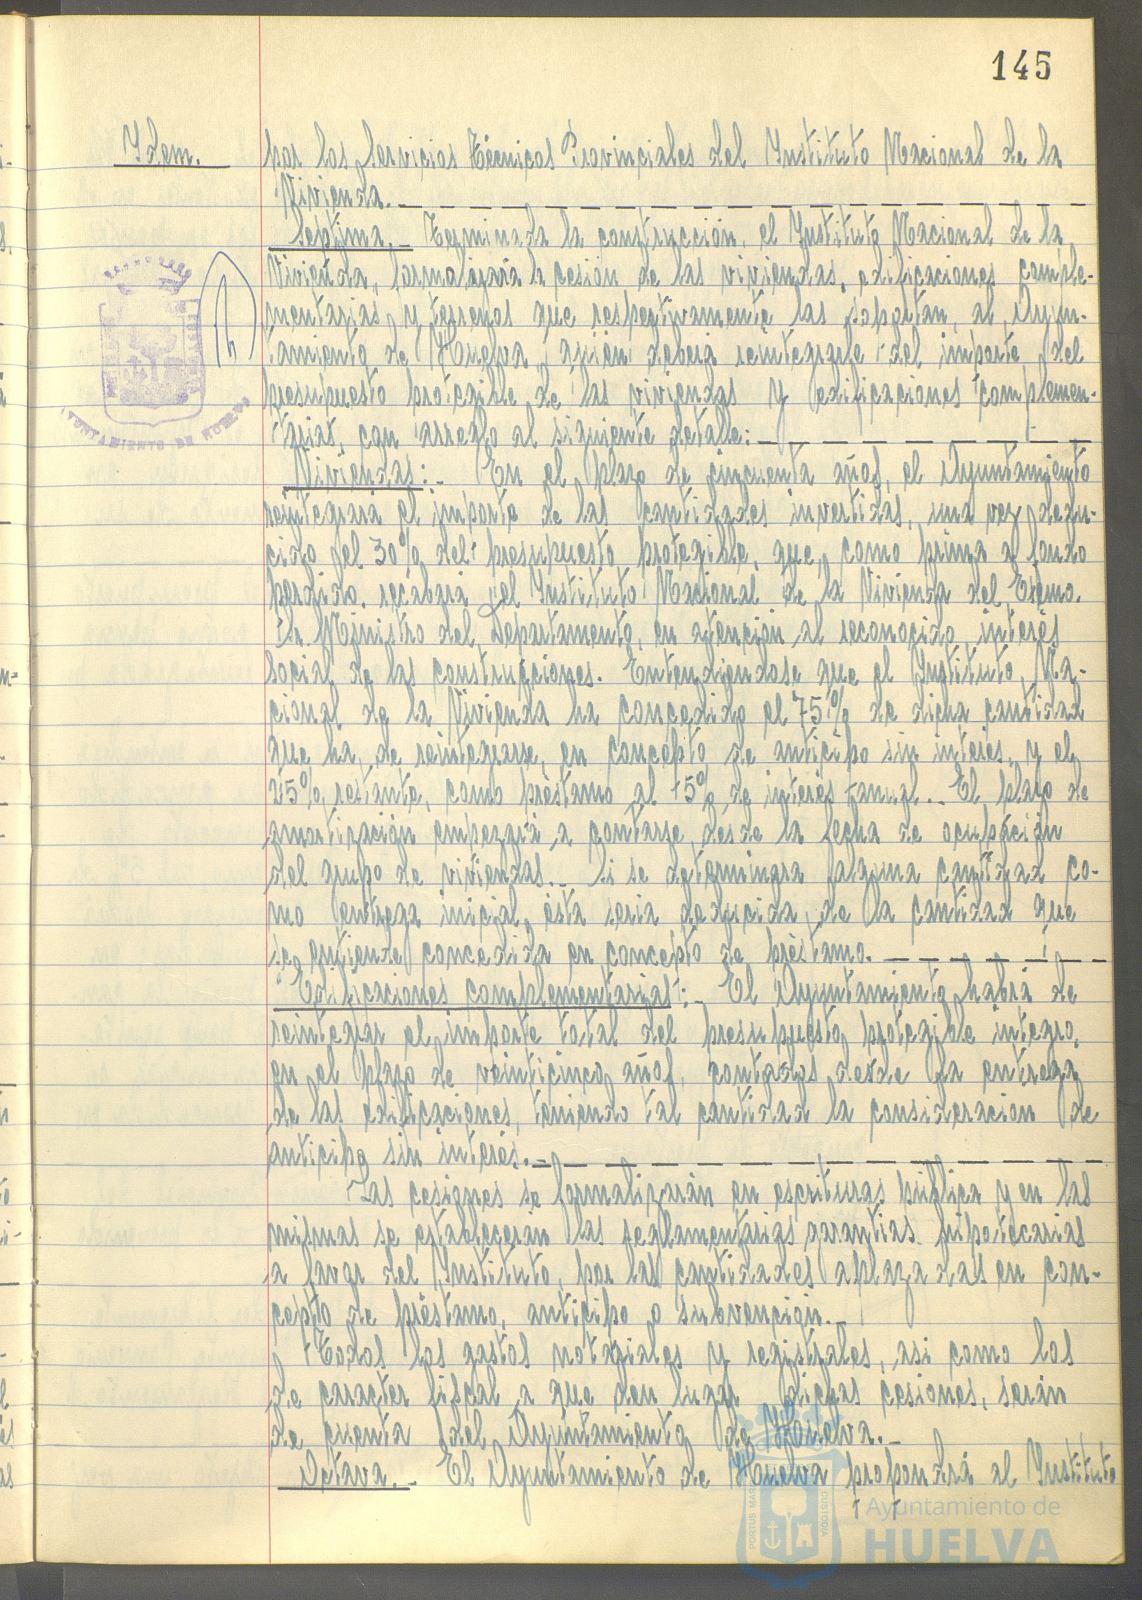 145
Idem.
por los Servicios Técnicos Provinciales del Instituto Nacional de la
Vivienda.
Séptima.- Terminada la construcción, el Instituto Nacional de la
Vivienda, formalizará la cesión de las viviendas, edificaciones comple-
mentarias y terrenos que respectivamente las soportan, al Ayun-
tamiento de Huelva, quien deberá reintegrarle del importe del
presupuesto protegible de las viviendas y edificaciones complemen-
tarias, con arreglo al siguiente detalle:
Viviendas:- En el plazo de cincuenta años, el Ayuntamiento
reintegrará el importe de las cantidades invertidas, una vez dedu-
cido el 30% del presupuesto protegible, que, como prima a fondo
perdido, recabará el Instituto Nacional de la Vivienda del Excmo.
Sr. Ministro del Departamento, en atención al reconocido interés
social de las construcciones. Entendiéndose que el Instituto Na-
cional de la Vivienda ha concedido el 75% de dicha cantidad
que ha de reintegrarse, en concepto de anticipo sin interés, y el
25% restante, como préstamo al 5% de interés anual.- El plazo de
amortización empezará a contarse, desde la fecha de ocupación
del grupo de viviendas.- Si se determinara alguna cantidad co-
mo entrega inicial, ésta seria deducida, de la cantidad que
se entiende concedida en concepto de préstamo.
Edificaciones complementarias:- El Ayuntamiento habrá de
reintegrar el importe total del presupuesto protegible integro,
en el plazo de veinticinco años, contados desde la entrega
de las edificaciones, teniendo tal cantidad la consideracion de
anticipo sin interés.-
Las cesiones se formalizarán en escrituras pública y en las
mismas se establecerán las reglamentarias garantias hipotecarias
a favor del Instituto, por las cantidades aplazadas en con-
cepto de préstamo, anticipo o subvención.
Todos los gastos notariales y registrales, asi como los
de caracter fiscal a que den lugar dichas cesiones, serán
de cuenta del Ayuntamiento de Huelva.-
Octava.- El Ayuntamiento de Huelva propondrá al Instituto
AYUNTAMIENTO DE HUELVA
PORTUS MARIS
CUSTODIA
Ayuntamiento de
HUELVA